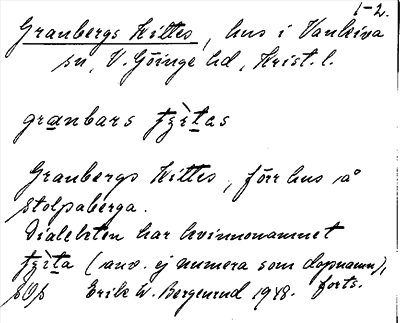 1-2.
Granbergs Kittes, hus i Vankiva
sn, V. Göinge hd, Krist. l.
granbars tʒìtas
Granbergs Kittes, förr hus å
Stolpaberga.
Dialekten har kvinnonamnet
tʒìta (anv. ej numera som dopnamn),
forts.
Erik W. Bergenrud 1948.